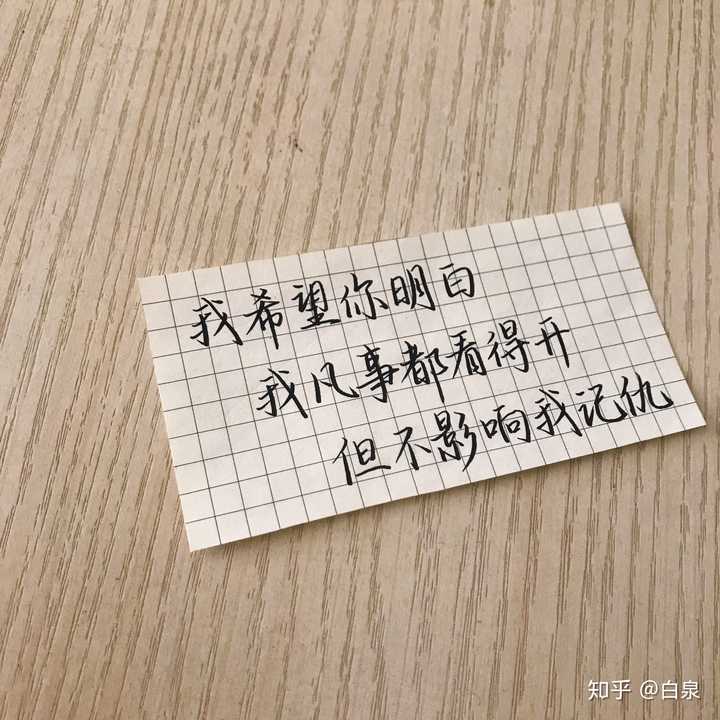 我希望你明白
我凡事都看得开
但不影响我记仇
知乎 @白泉